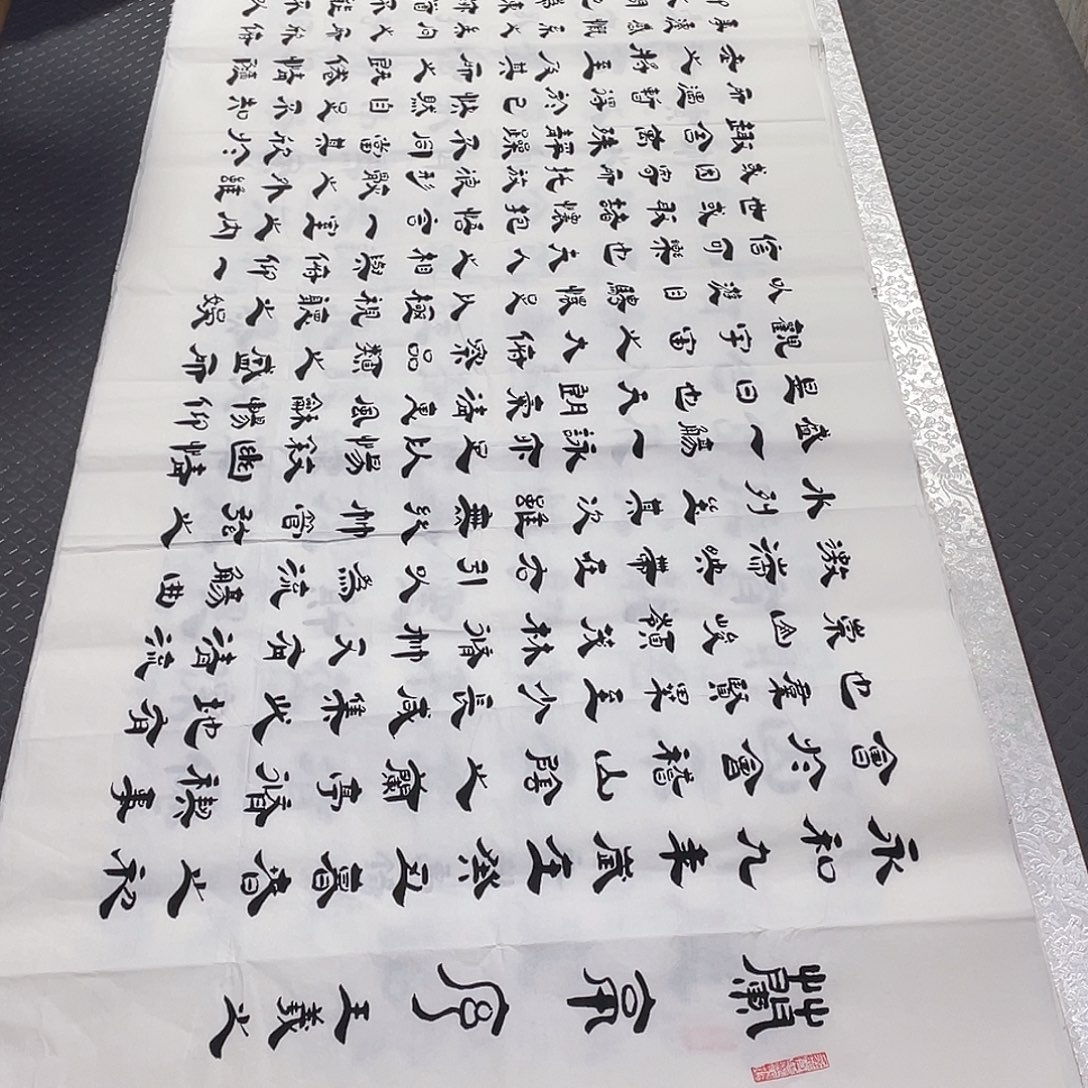 蘭亭序 王羲之
永和九年歲在癸丑暮春之初
會於會稽山陰之蘭亭脩禊事
也羣賢畢至少長咸集此地有
崇山峻嶺茂林脩竹又有清流
激湍映帶左右引以為流觴曲
水列坐其次雖無絲竹管弦之
盛一觴一詠亦足以暢敘幽情
是日也天朗氣清惠風和暢仰
觀宇宙之大俯察品類之盛所
以遊目騁懷足以極視聽之娛
信可樂也夫人之相與俯仰一
世或取諸懷抱悟言一室之內
或因寄所托放浪形骸之外雖
趣舍萬殊靜躁不同當其欣於
所遇暫得於己快然自足不知
老之將至及其所之既倦情隨